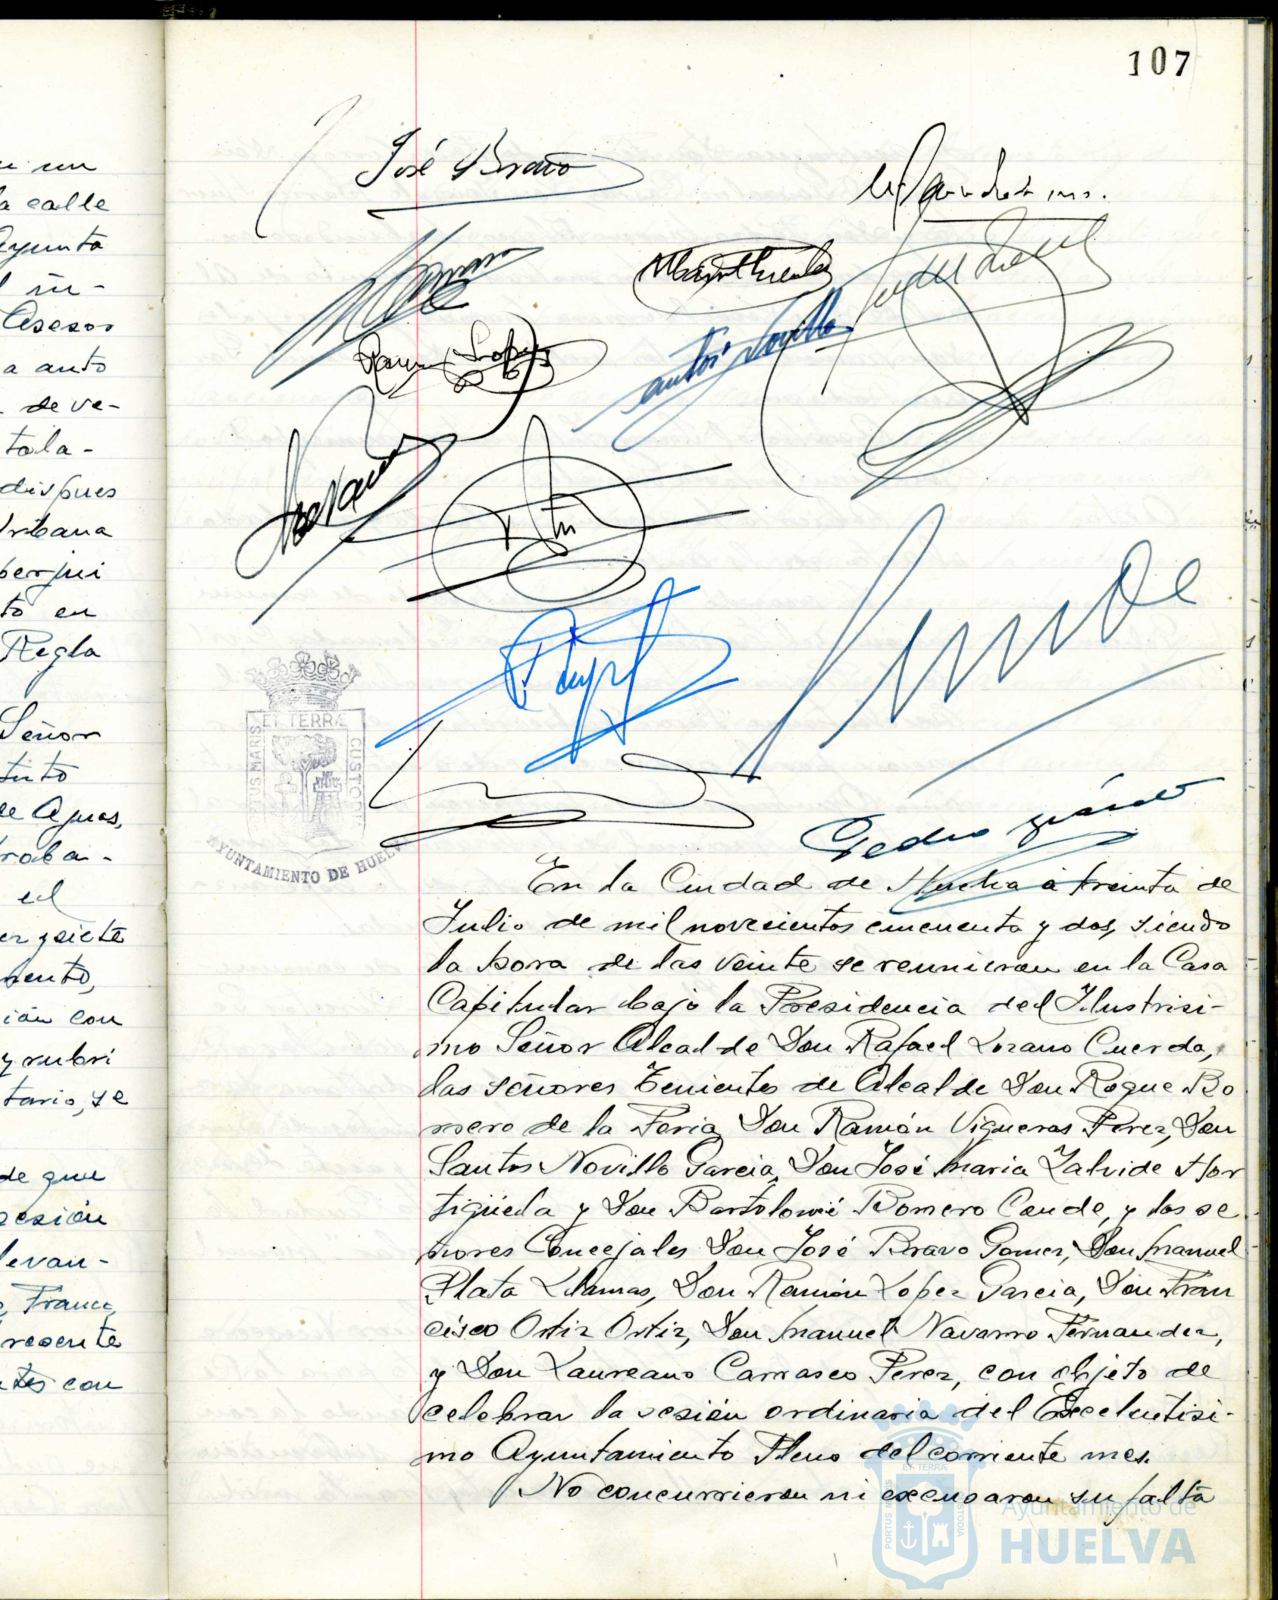 n un
a calle
Ayunta
l in-
Asesor
a auto
de ve-
tala-
dispues
Urbana
perjui
to en
Regla
Señor
tinto
de Aguas,
roba-
el
er y siete
mento,
ión con
y rubri
tario, se
de que
sesión
levan-
Franco,
resente
ntes con
107
José Bravo
Ramon Lopez
Pedro
PORTUS MARIS ET TERRÆ CUSTODIA
AYUNTAMIENTO DE HUELVA
En la Ciudad de Huelva a treinta de
Julio de mil novecientos cincuenta y dos, siendo
la hora de las veinte se reunieron en la Casa
Capitular bajo la Presidencia del Ilustrisi-
mo Señor Alcalde Don Rafael Lozano Cuerda,
los señores Tenientes de Alcalde Don Roque Ro
mero de la Feria, Don Ramón Vigueras Perez, Don
Santos Novillo Garcia, Don José Maria Zalvide Hor
tigüela y Don Bartolomé Romero Conde, y los se
ñores Concejales Don José Bravo Gomez, Don Manuel
Plata Llamas, Don Ramón Lopez Garcia, Don Fran
cisco Ortiz Ortiz, Don Manuel Navarro Fernandez,
y Don Laureano Carrasco Perez, con objeto de
celebrar la sesión ordinaria del Excelentisi-
mo Ayuntamiento Pleno del corriente mes.
No concurrieron ni excusaron su falta
PORTUS MARIS ET TERRA CUSTODIA
Ayuntamiento de
HUELVA